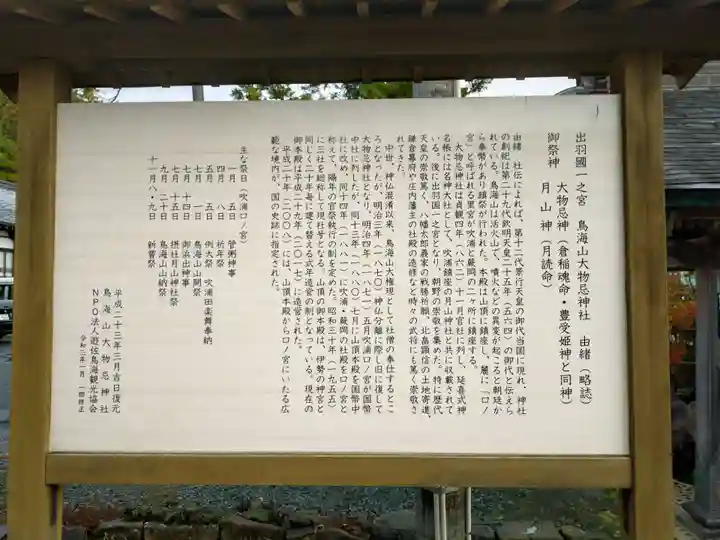 出羽國一之宮　鳥海山大物忌神社　由緒（略誌）
御祭神　大物忌神（倉稲魂命・豊受姫神と同神）
月山神（月読命）
由緒　社伝によれば、第十二代景行天皇の御代当国に現れ、神社
の創祀は第二十九代欽明天皇二十五年（五六四）の御代と伝えら
れている。鳥海山は活火山で、噴火などの異変が起こると朝廷か
ら奉幣があり鎮祭が行われた。本殿は山頂に鎮座し、麓に「口ノ
宮」と呼ばれる里宮が吹浦と蕨岡の二ヶ所に鎮座する。
大物忌神社は貞観四年（八六二）十一月官社に列し、延喜式神
名帳には名神大社として、吹浦鎮座の月山神社と共に収載されて
いる。後に出羽国一之宮となり、朝野の崇敬を集めた。特に歴代
天皇の崇敬篤く、八幡太郎義家の戦勝祈願、北畠顕信の土地寄進、
鎌倉幕府や庄内藩主の社殿の造修など時々の武将にも篤く崇敬さ
れてきた。
中世、神仏混淆以来、鳥海山大権現として社僧の奉仕するとこ
ろとなったが、明治三年（一八七〇）神仏分離に際し旧に復して
大物忌神社となり、明治四年（一八七一）五月吹浦口ノ宮が国幣
中社に列したが、同十三年（一八八〇）七月に山頂本殿を国幣中
社に改め、同十四年（一八八一）に吹浦・蕨岡の社殿を口ノ宮と
称えて、隔年の官祭執行の制を定めた。昭和三十年（一九五五）
に三社を総称して現社号となる。山頂の御本殿は、伊勢の神宮と
同じく二十年毎に建て替える式年造営の制となっている。現在の
御本殿は平成二十九年（二〇一七）に造営された。
平成二十年（二〇〇八）には、山頂本殿から口ノ宮にいたる広
範な境内が、国の史跡に指定された。
主な祭日（吹浦口ノ宮）
一月　五日　管粥神事
四月　八日　祈年祭
五月　五日　例大祭　吹浦田楽舞奉納
七月　一日　鳥海山山開祭
七月十四日　御浜出神事
七月十五日　摂社月山神社祭
九月二十日　鳥海山山納祭
十一月八、九日　新嘗祭
平成二十三年三月吉日復元
鳥海山大物忌神社
NPO法人遊佐鳥海観光協会
令和三年一月　一部修正